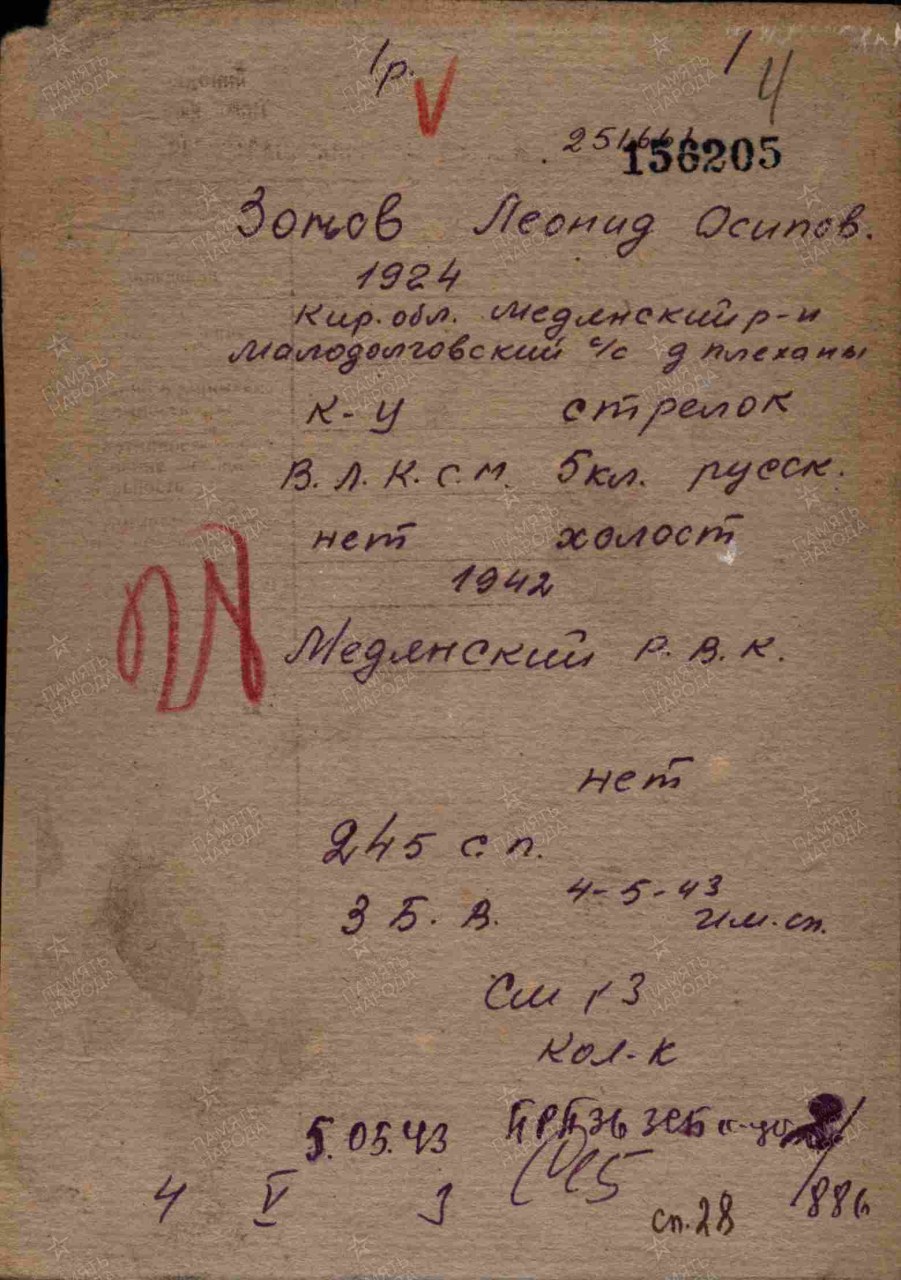 1р. 1 4
156205
Зотов Леонид Осипов.
1924
Кир. обл. Медянский р-н
Малодолговский с/с д Плеханы
к-ц стрелок
В.Л.К.С.М. 5кл. русск.
нет холост
1942
Медянский Р.В.К.
нет
245 с.п.
4-5-43
3 Б.В. им.сп.
См 13
Кол-к
5.05.43
4 V 3 /886
сп.28
ПАМЯТЬ НАРОДА